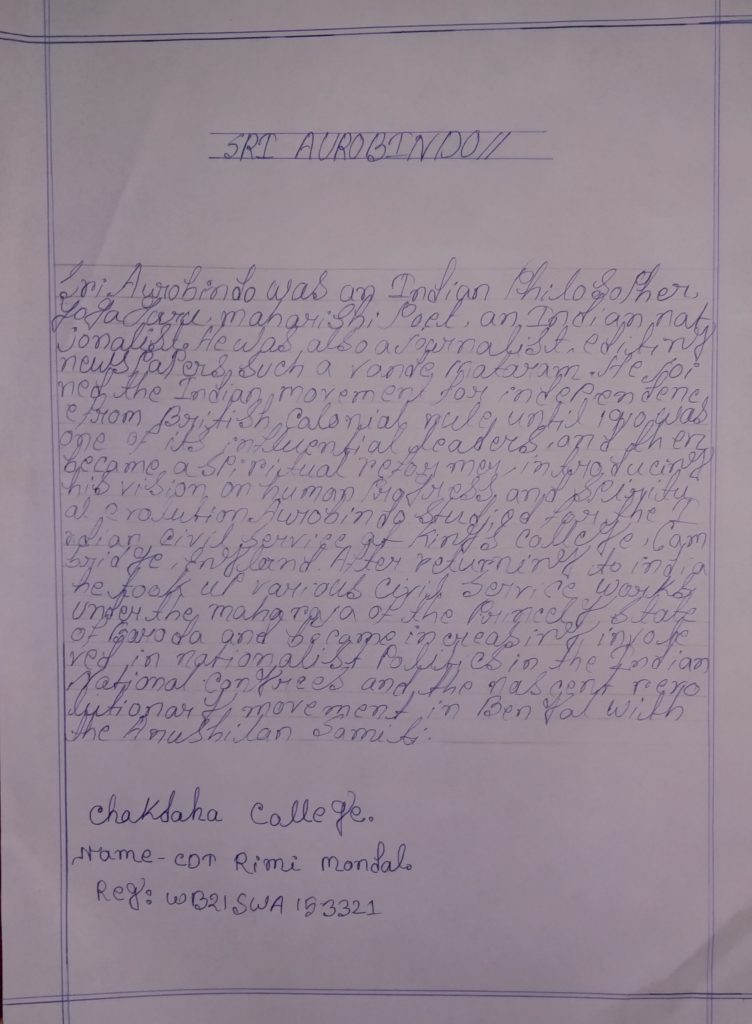 SRI AUROBINDO//
Sri Aurobindo was an Indian Philosopher,
Yoga Guru, maharishi Poet, an Indian nat
ionalist. He was also a Journalist, editing
newspapers, such a vande Mataram. He joi
ned the Indian movement for independenc
e from British colonial rule, until 1910 was
one of its influential leaders, and then
became a spiritual reformer, introducing
his vision on human Progress and spiritu
al evolution. Aurobindo studied for the I
ndian Civil Service at King's callege, Cam
bridge, England. After returning to india
he took up various civil service works
under the maharaja of the Princely state
of Baroda and became increasing invole
ved in nationalist Politics in the Indian
National Congrees and the nascent revo
lutionary movement in Bengal with
the Anushilan Samiti.
Chakdaha Callege.
Name - CDT Rimi Mondal.
Reg: WB21SWA153321